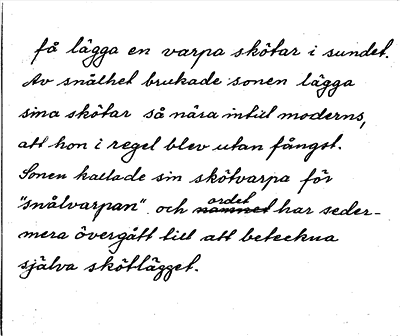 få lägga en varpa skötar i sundet.
Av snålhet brukade sonen lägga
sina skötar så nära intill moderns,
att hon i regel blev utan fångst.
Sonen kallade sin skötvarpa för
"snålvarpan" och namnet ordet har seder-
mera övergått till att beteckna
själva skötlägget.